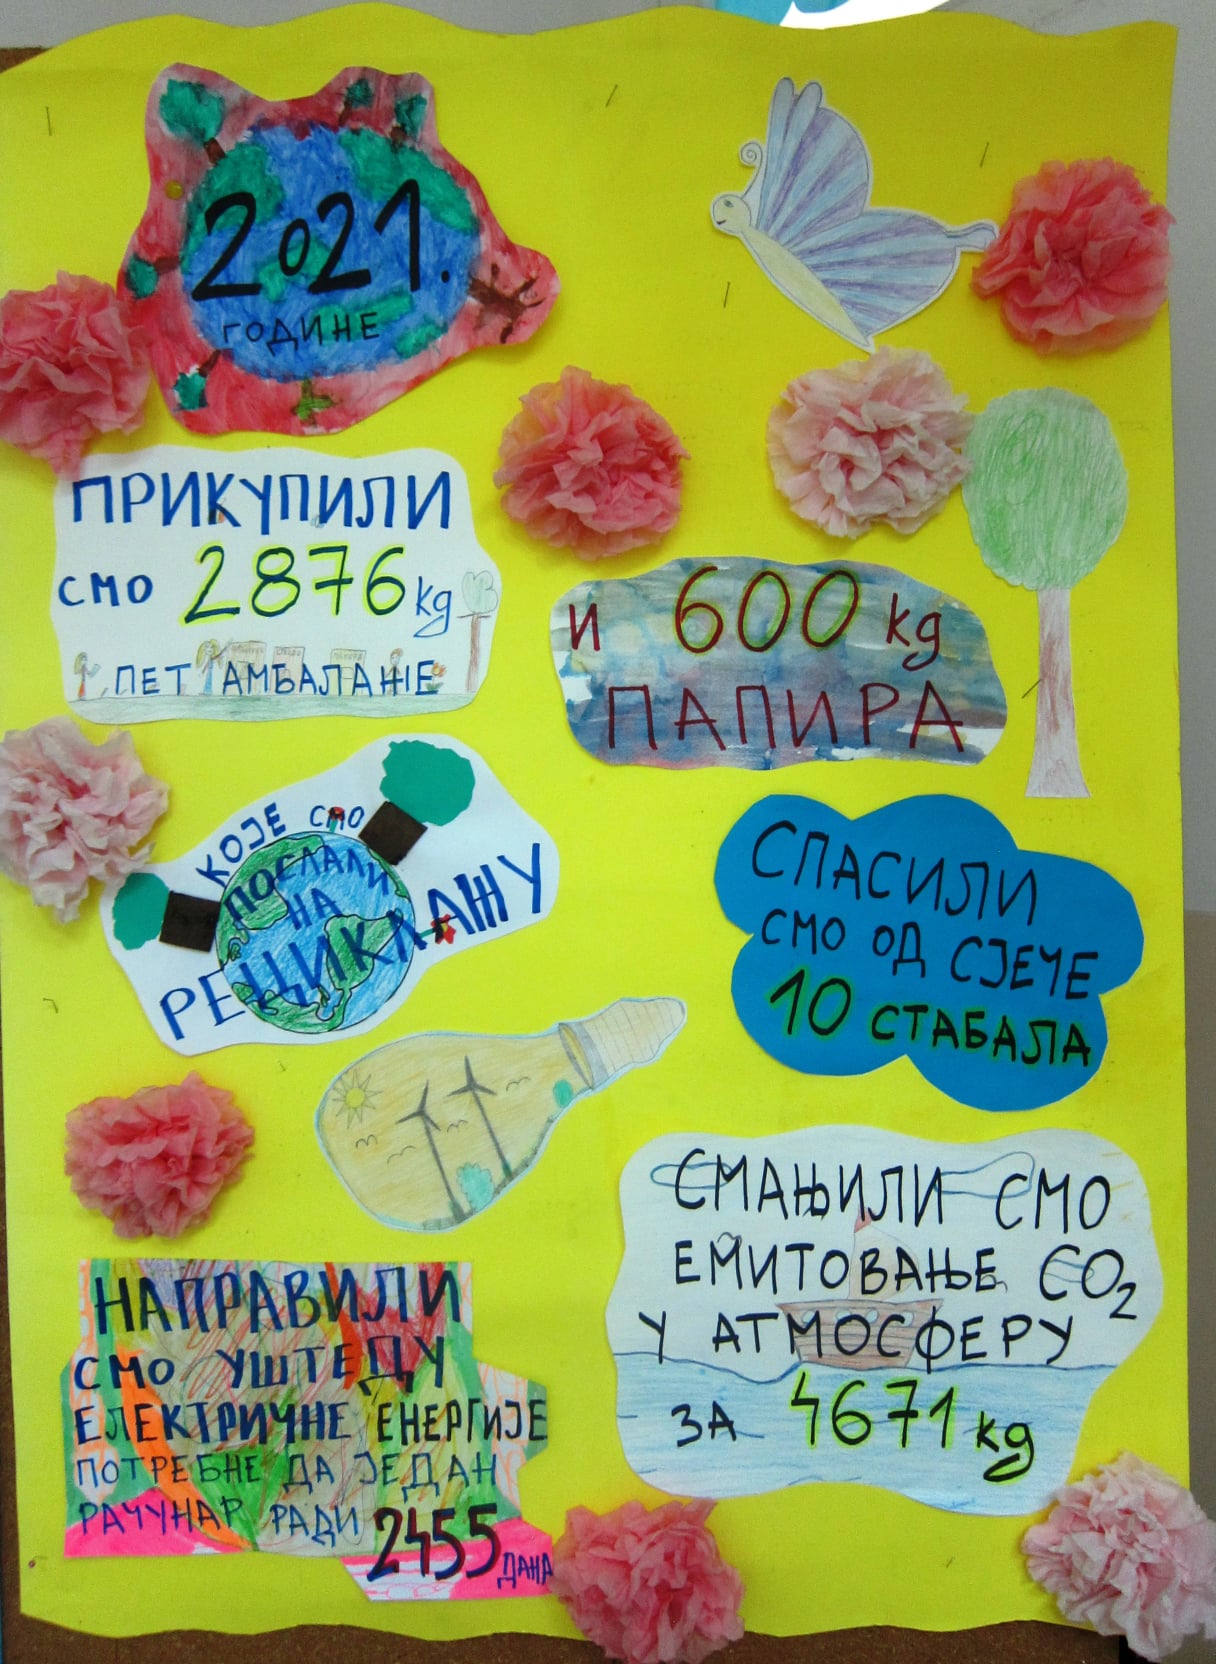 2021.
ГОДИНЕ
ПРИКУПИЛИ
СМО 2876 kg
ПЕТ АМБАЛАЖЕ
И 600 kg
ПАПИРА
КОЈЕ СМО
ПОСЛАЛИ
НА
РЕЦИКЛАЖУ
СПАСИЛИ
СМО ОД СЈЕЧЕ
10 СТАБАЛА
НАПРАВИЛИ
СМО УШТЕДУ
ЕЛЕКТРИЧНЕ ЕНЕРГИЈЕ
ПОТРЕБНЕ ДА ЈЕДАН
РАЧУНАР РАДИ 2455 ДАНА
СМАЊИЛИ СМО
ЕМИТОВАЊЕ CO₂
У АТМОСФЕРУ
ЗА 4671 kg